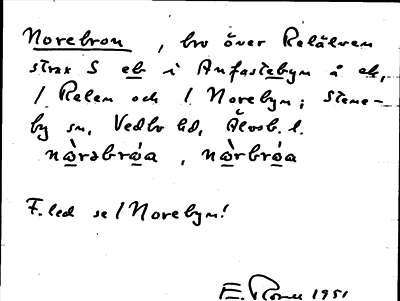 Norebron, bro över Relälven
strax S eb i Anfastebyn å ek,
/ Relen och / Norebyn; Stene-
by sn, Vedbo hd, Älvsb. l.
nò̱rəbró̱a, nò̱rbró̱a
F.led se / Norebyn!
E. 1951